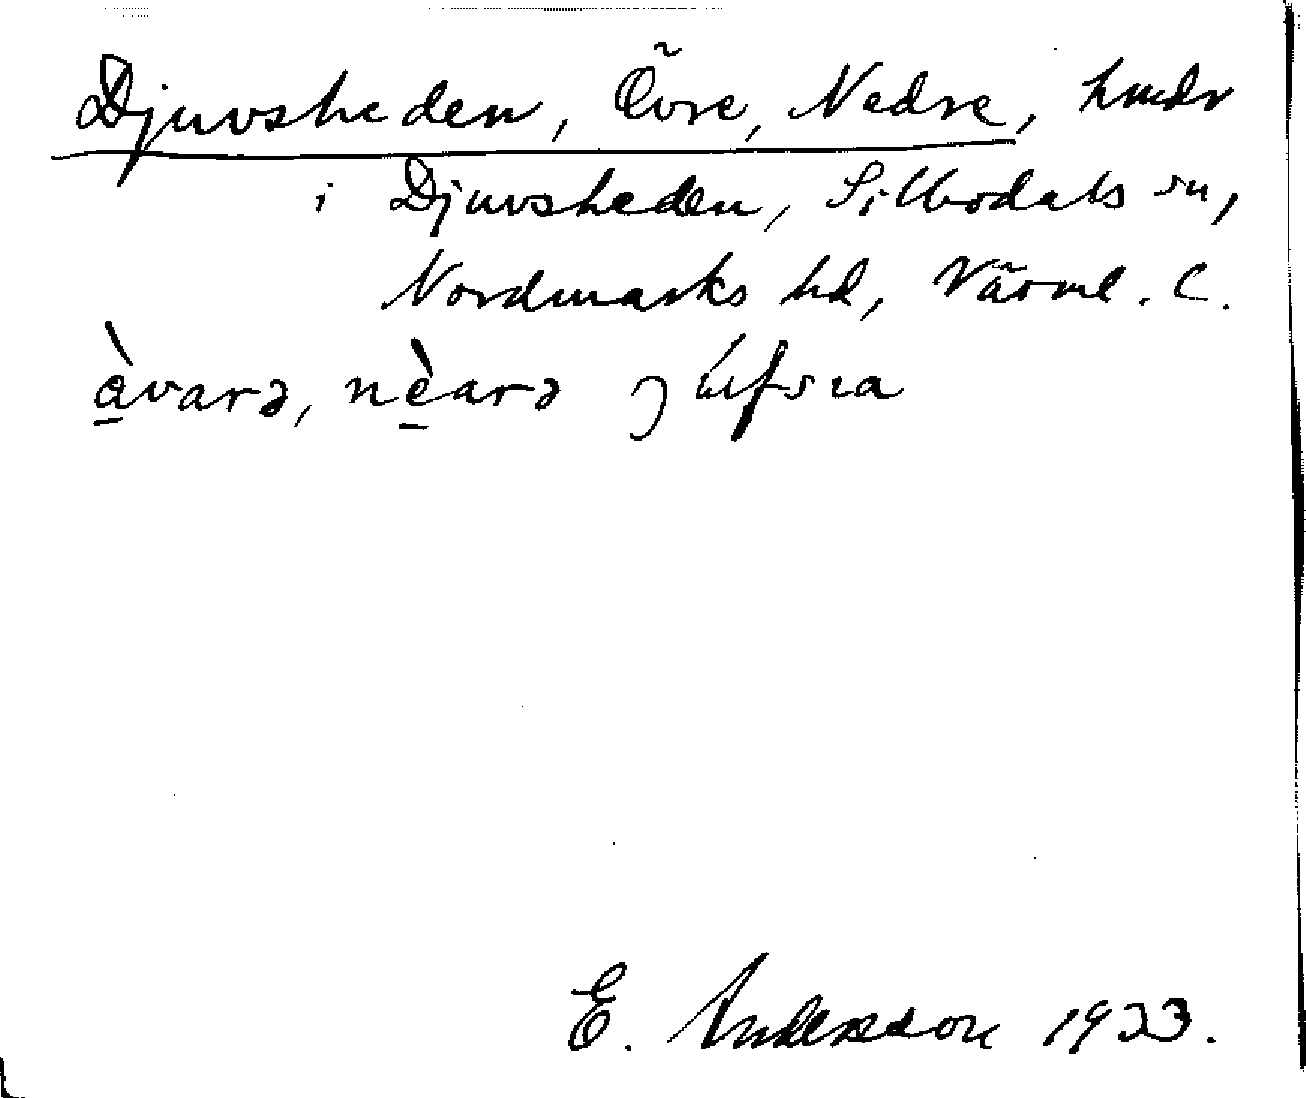 Djuvsheden, Övre, Nedre, hmdr
i Djuvsheden, Sillbodals sn,
Nordmarks hd, Värml. l.
àvarə, nèarə
E. Andersson 1933.